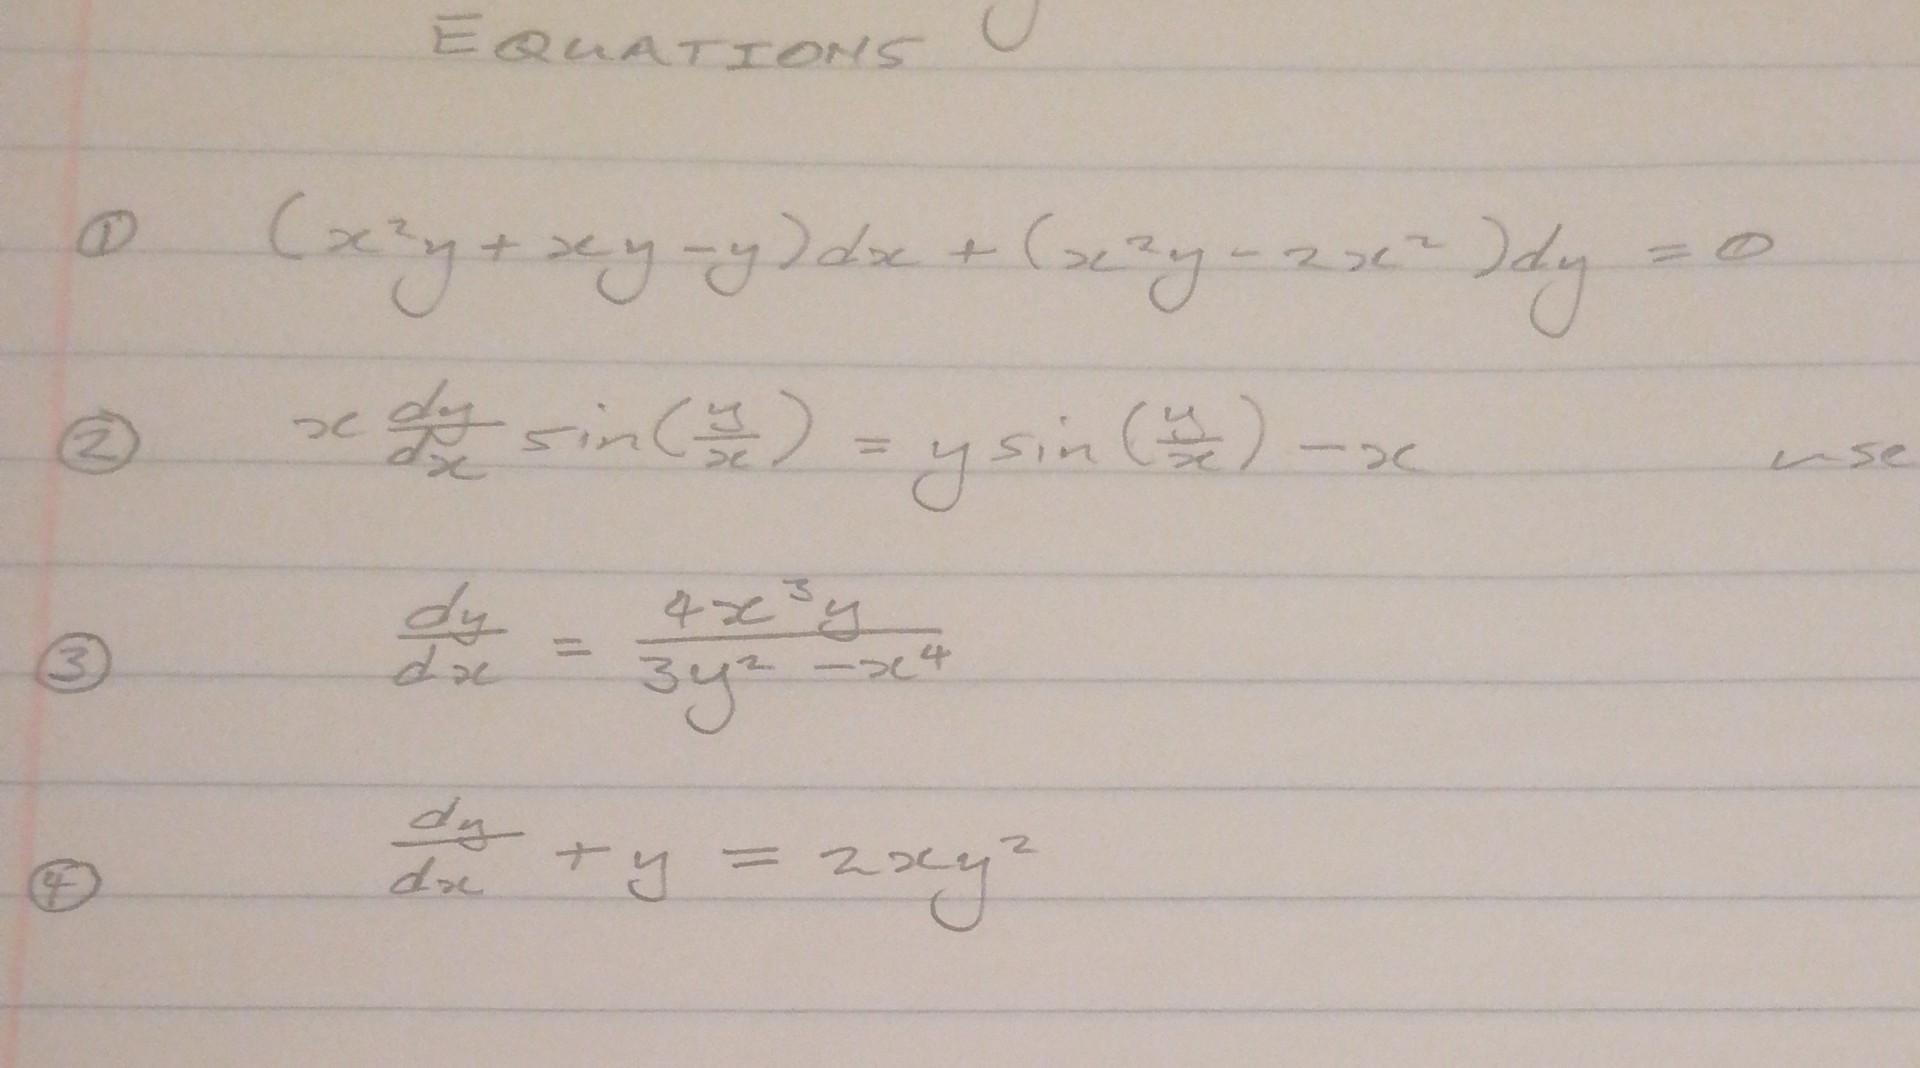 EQUATIONS
① (x²y + xy - y)dx + (x²y - 2x²)dy = 0
② x dy/dx sin(y/x) = y sin(y/x) - x use
③ dy/dx = 4x³y / 3y² - x⁴
④ dy/dx + y = 2xy²